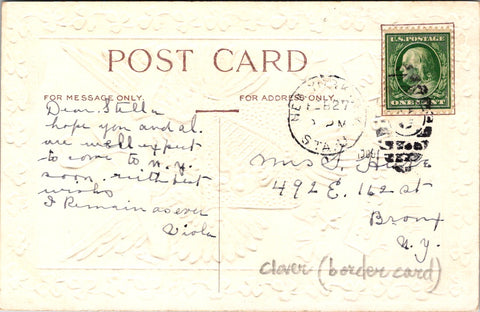 POST CARD
FOR MESSAGE ONLY.
FOR ADDRESS ONLY.
U.S. POSTAGE
ONE CENT
NEW
27
PM
STA.
Dear Stella
hope you and al.
are well expect
to come to N.Y.
soon. with best
wishes
I Remain as ever
Viola
Mrs
492 E. 162 st
Bronx
N.Y.
clover (border card)